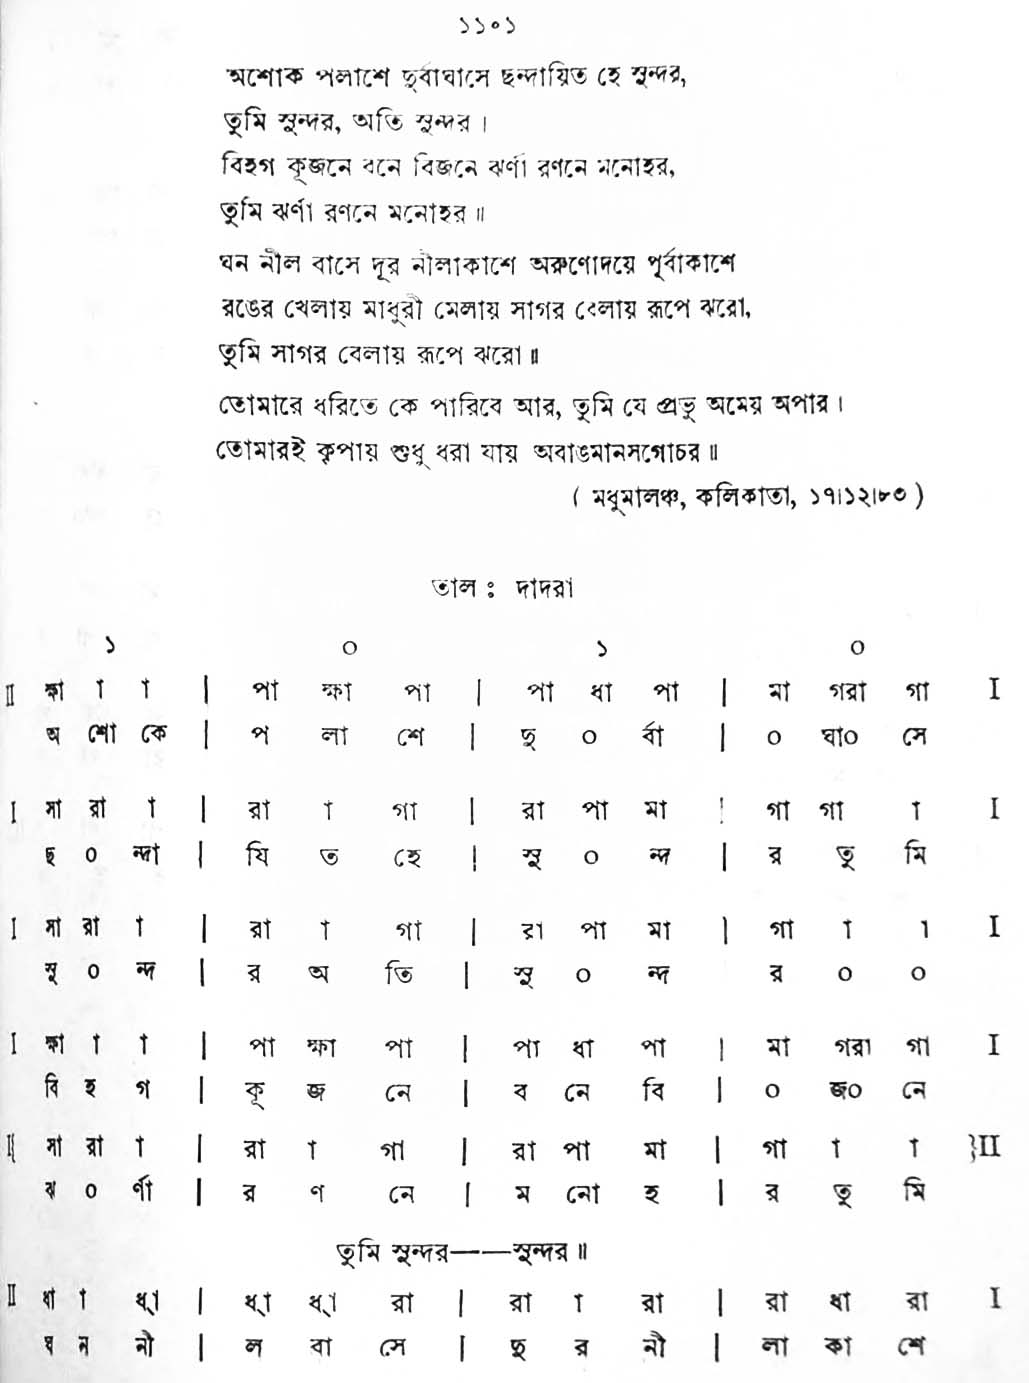 ১১০১
অশোক পলাশে দুর্বাঘাসে ছন্দায়িত হে সুন্দর,
তুমি সুন্দর, অতি সুন্দর ।
বিহগ কূজনে বনে বিজনে ঝর্ণা রণনে মনোহর,
তুমি ঝর্ণা রণনে মনোহর ॥
ঘন নীল বাসে দূর নীলাকাশে অরুণোদয়ে পূর্বাকাশে
রঙের খেলায় মাধুরী মেলায় সাগর বেলায় রূপে ঝরো,
তুমি সাগর বেলায় রূপে ঝরো ॥
তোমারে ধরিতে কে পারিবে আর, তুমি যে প্রভু অমেয় অপার ।
তোমারই কৃপায় শুধু ধরা যায় অবাঙমানসগোচর ॥
( মধুমালঞ্চ, কলিকাতা, ১৭।১২।৮৩ )
তাল ঃ দাদরা
১ ০ ১ ০
II ক্ষা া া | পা ক্ষা পা | পা ধা পা | মা গরা গা I
অ শো কে | প লা শে | দু ০ র্বা | ০ ঘা০ সে
I সা রা া | রা া গা | রা পা মা | গা গা া I
ছ ০ ন্দা | য়ি ত হে | সু ০ ন্দ | র তু মি
I সা রা া | রা া গা | রা পা মা | গা া া I
সু ০ ন্দ | র অ তি | সু ০ ন্দ র ০ ০
I ক্ষা া া | পা ক্ষা পা | পা ধা পা | মা গরা গা I
বি হ গ | কূ জ নে | ব নে বি | ০ জ০ নে
I{ সা রা া | রা া গা | রা পা মা | গা া া }II
ঝ ০ র্ণা | র ণ নে | ম নো হ | র তু মি
তুমি সুন্দর——সুন্দর ॥
II ধা া ধ্া | ধ্া ধ্া রা | রা া রা | রা ধা রা I
ঘ ন নী | ল বা সে | দু র নী | লা কা শে